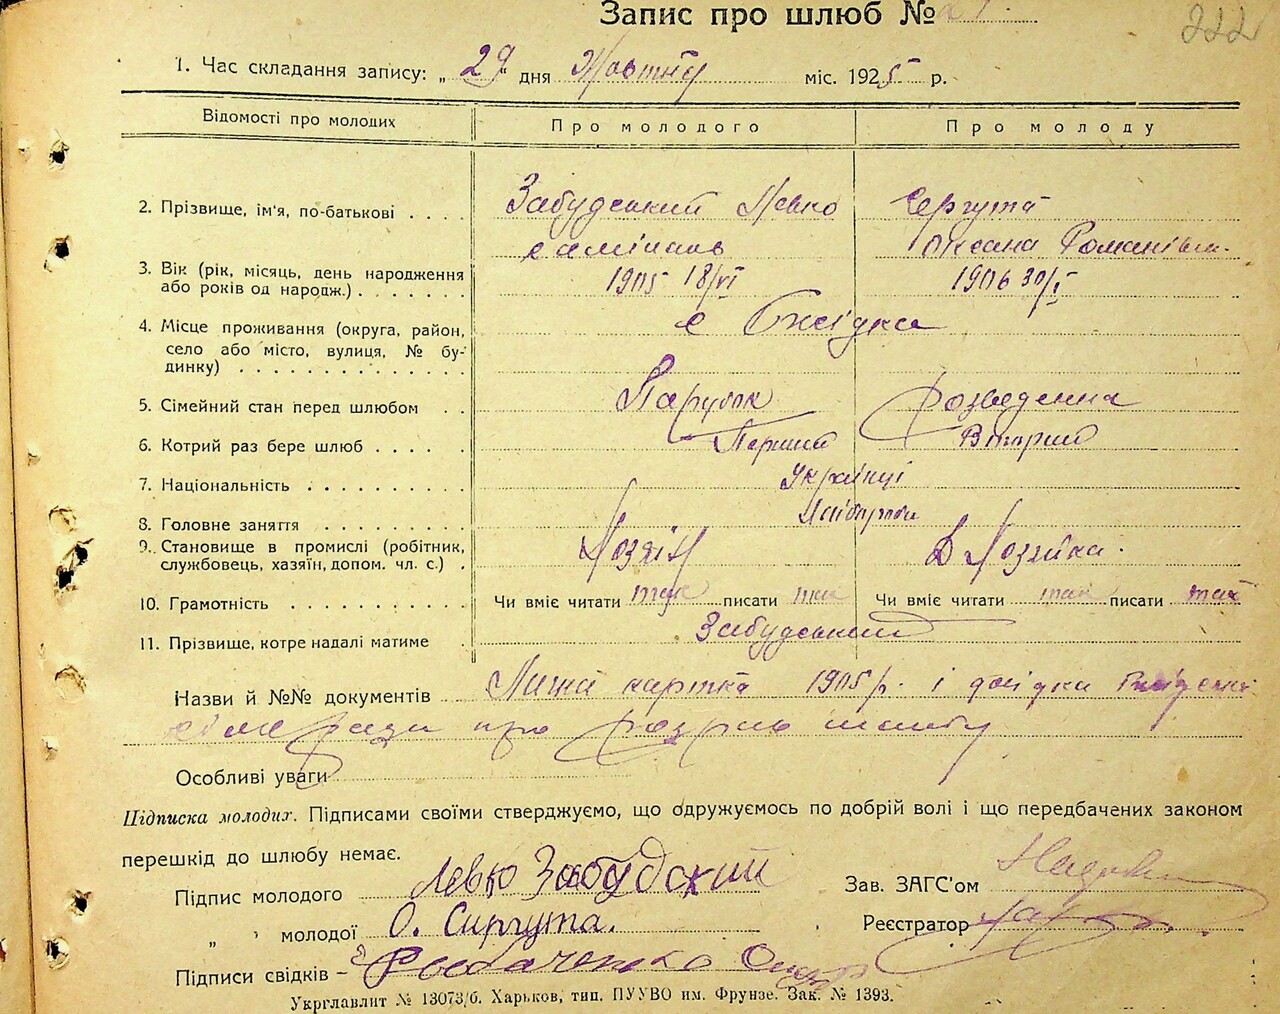 Запис про шлюб №
222
1. Час складання запису: „ 29 " дня Жовтня міс. 1925 р.
Відомості про молодих
Про молодого
Про молоду
2. Прізвище, ім'я, по-батькові . . . . Забудський Левко Сергута
Оксана Романівн.
3. Вік (рік, місяць, день народження 1905 18/VI 1906 30/I
або років од народж.) . . . . . . .
4. Місце проживання (округа, район, с
село або місто, вулиця, № бу-
динку) . . . . . . . . . . . . . .
5. Сімейний стан перед шлюбом . . Парубок Розведенна
6. Котрий раз бере шлюб . . . . . Перший Вторий
7. Національність . . . . . . . . . Українці
8. Головне заняття . . . . . . . . Хлібороби
9. Становище в промислі (робітник, Хозяін Д Хозяйка.
службовець, хазяїн, допом. чл. с.) .
10. Грамотність . . . . . . . . . . Чи вміє читати так писати так Чи вміє читати так писати так
11. Прізвище, котре надалі матиме Забудський
Назви й №№ документів Лична картка 1905 р. і довідка
ради про розрив шлюбу
Особливі уваги
Підписка молодих. Підписами своїми стверджуємо, що одружуємось по добрій волі і що передбачених законом
перешкід до шлюбу немає.
Підпис молодого Левко Забудский
Зав. ЗАГС'ом
„ " молодої О. Сиргута.
Реєстратор
Підписи свідків –
Укрглавліт № 13073/б. Харьков, тип. ПУУВО им. Фрунзе. Зак. № 1393.